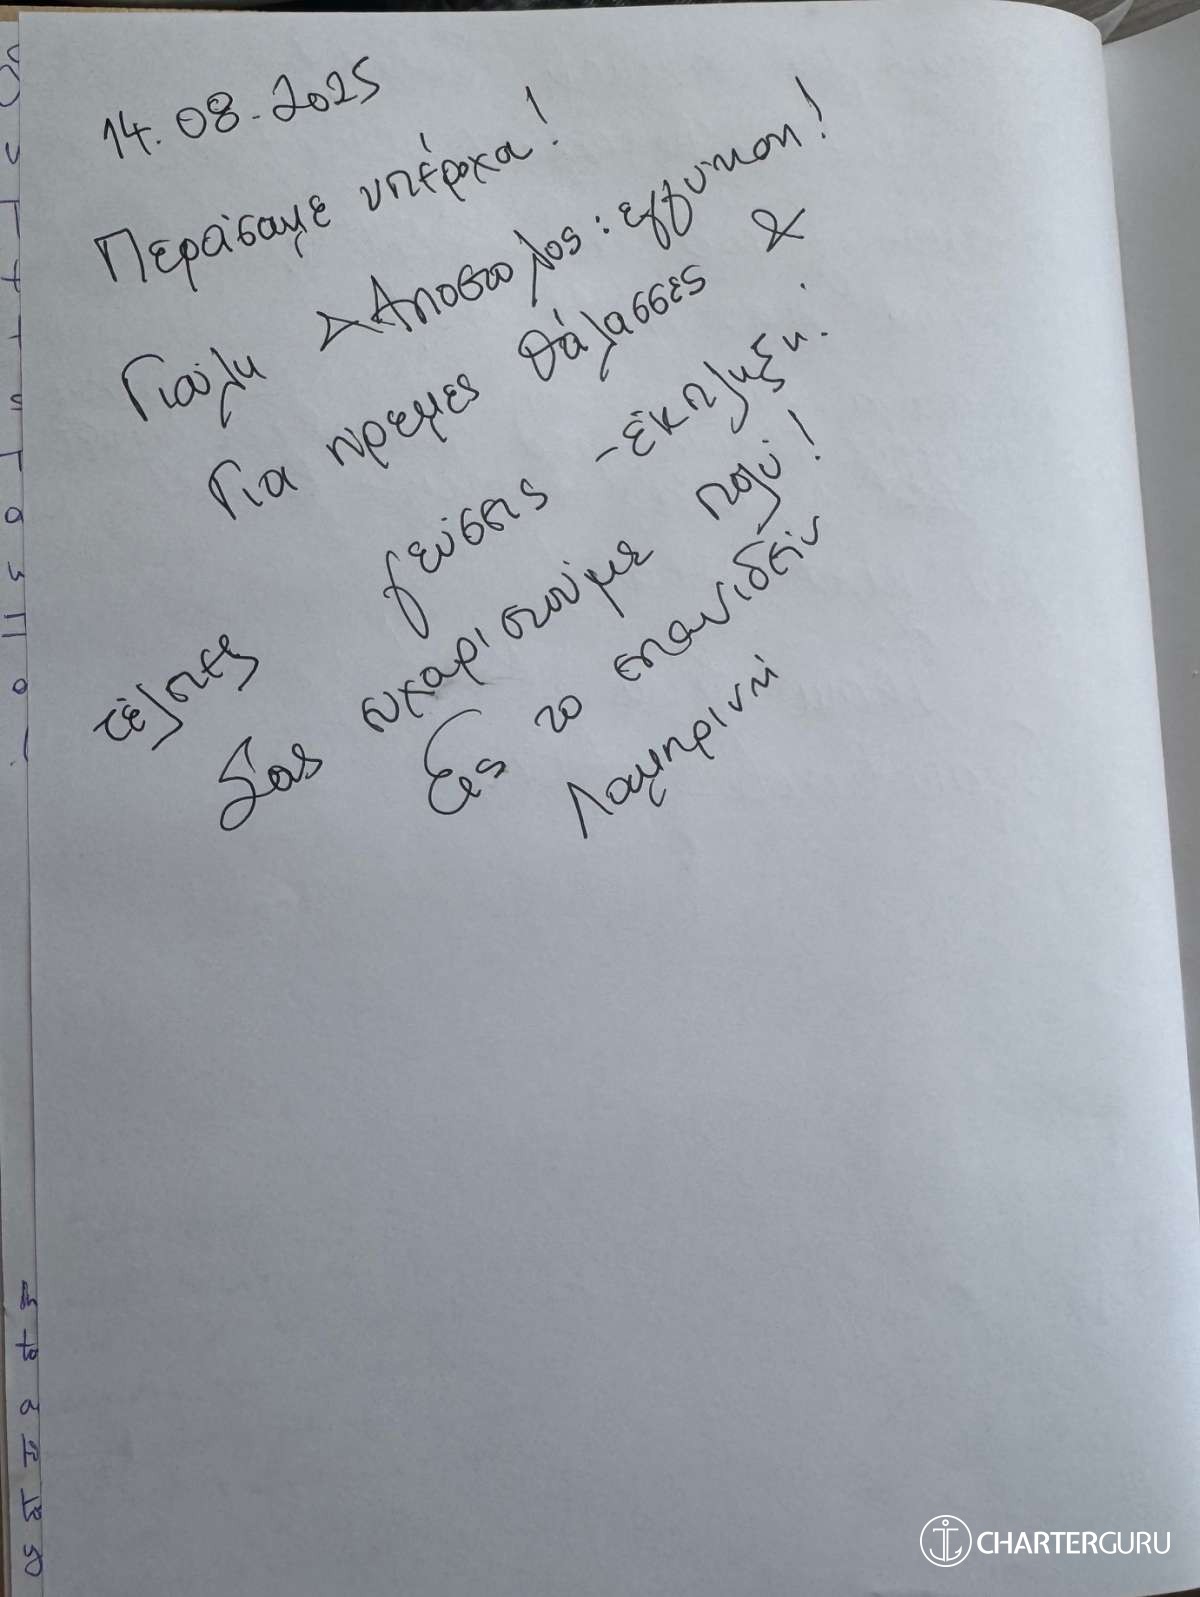 14.08.2025
Περάσαμε υπέροχα!
Γιούλη & Αποστολος: εγγύηση!
Για ήρεμες θάλασσες &
τέλειες γεύσεις - έκπληξη.
Σας ευχαριστούμε πολύ!
Εις το επανιδείν
Λαμπρινή
CHARTERGURU